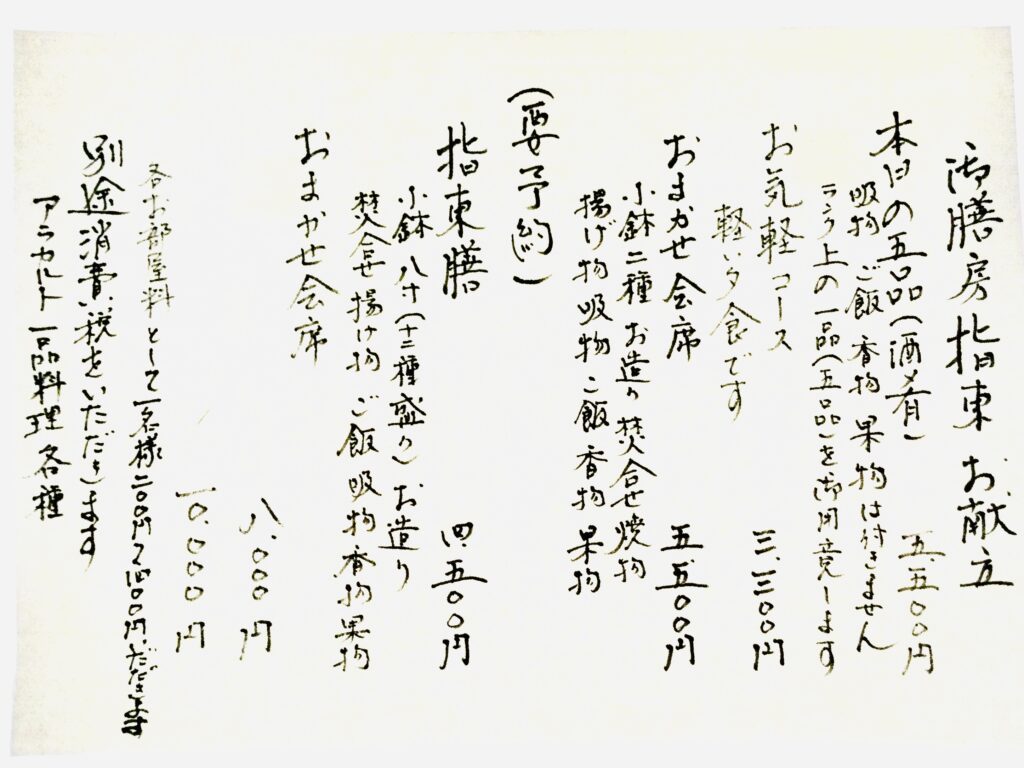 御膳房 指東 お献立
本日の五品(酒肴) 五.五〇〇円
吸物 ご飯 香物 果物は付きません
ランク上の一品(五品)を御用意します
お気軽コース 三.三〇〇円
軽い夕食です
おまかせ会席 五.五〇〇円
小鉢二種 お造り 焚合せ 焼物
揚げ物 吸物 ご飯 香物 果物
(要予約)
指東膳 四.五〇〇円
小鉢 八寸(十二種盛り) お造り
焚合せ 揚げ物 ご飯 吸物 香物 果物
おまかせ会席
八.〇〇〇円
一〇.〇〇〇円
各お部屋料として一名様二〇〇円〜四〇〇円いただきます
別途消費税をいただきます
アラカルト 一品料理 各種